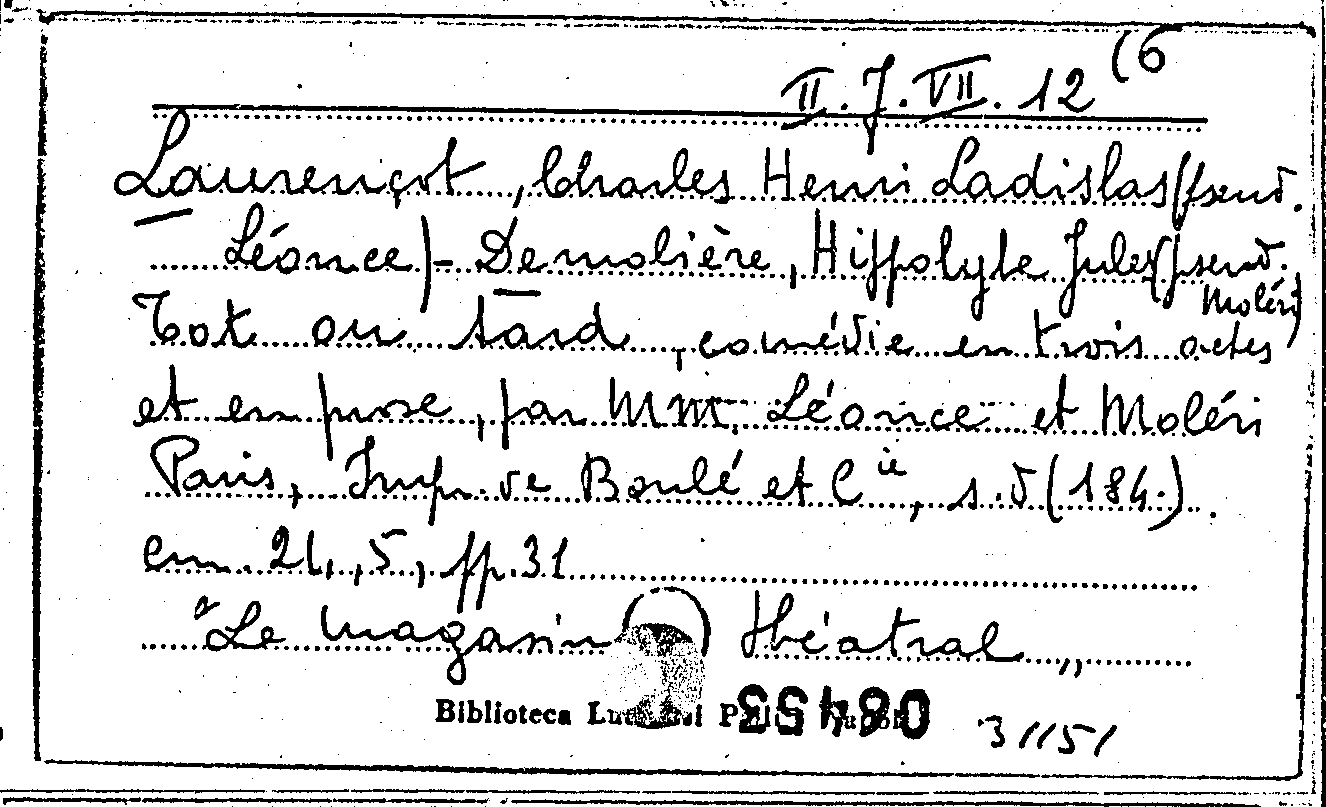 II. J. VII. 12 (6
Laurençot, Charles Henri Ladislas (pseud.
Léonce) - Demolière, Hippolyte Jules (pseud.
Moléri)
Tot ou tard, comédie en trois actes
et en prose, par MM. Léonce et Moléri
Paris, Imp. de Boulé et Cie, s. d (184.).
cm. 21,5, pp. 31
"Le magasin théatral"
Biblioteca
08453
31151